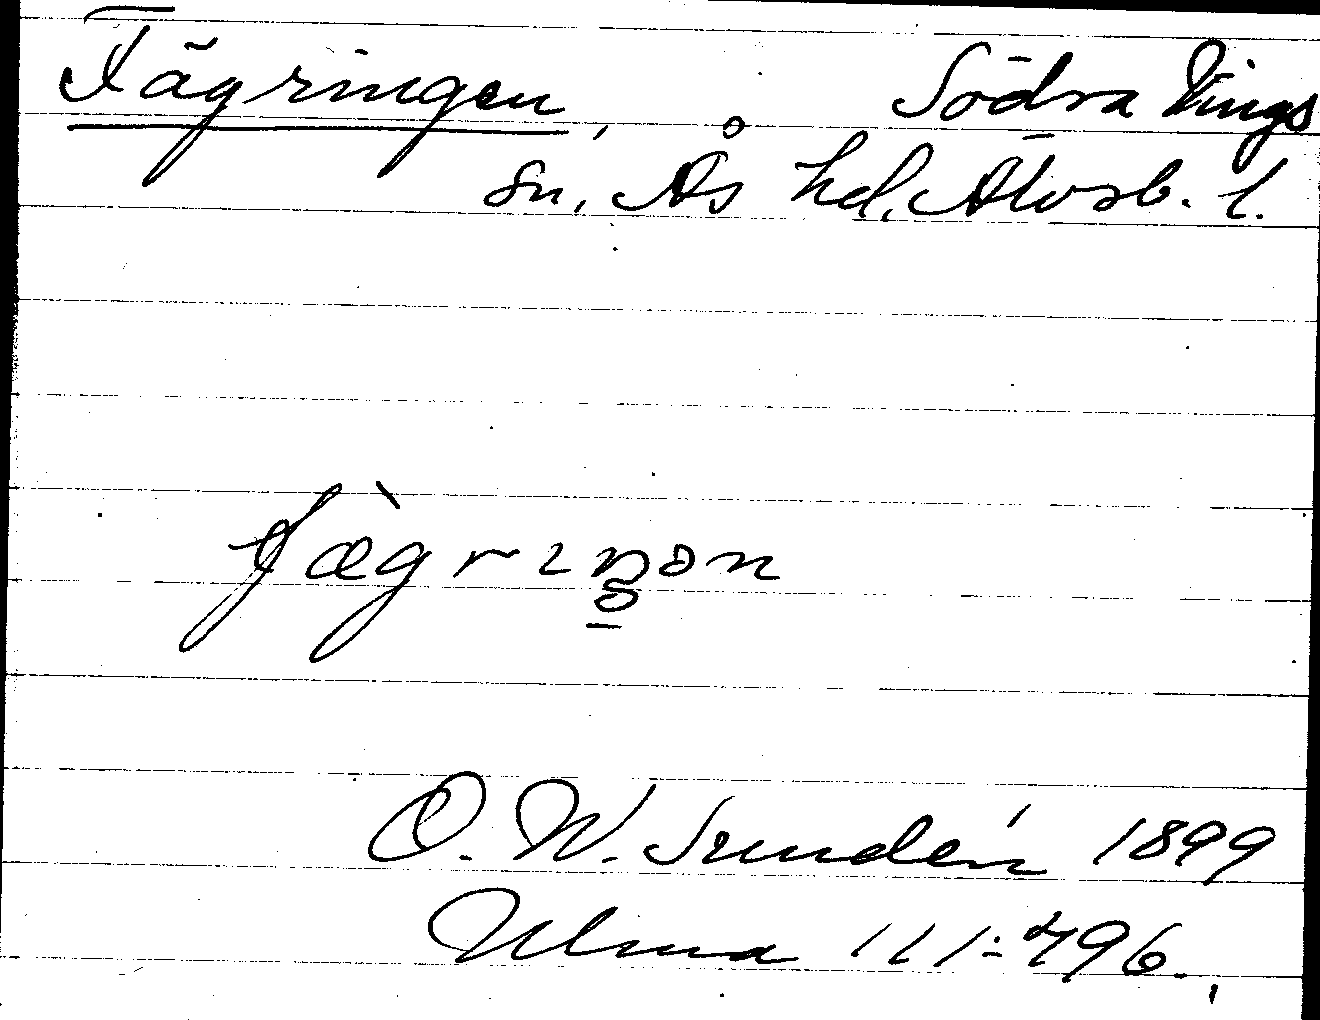 Fägringen, Södra Vings
sn, Ås hd, Älvsb. l.
fæ̀grıŋən
O. W. Sundén 1899
Ulma 111:496.